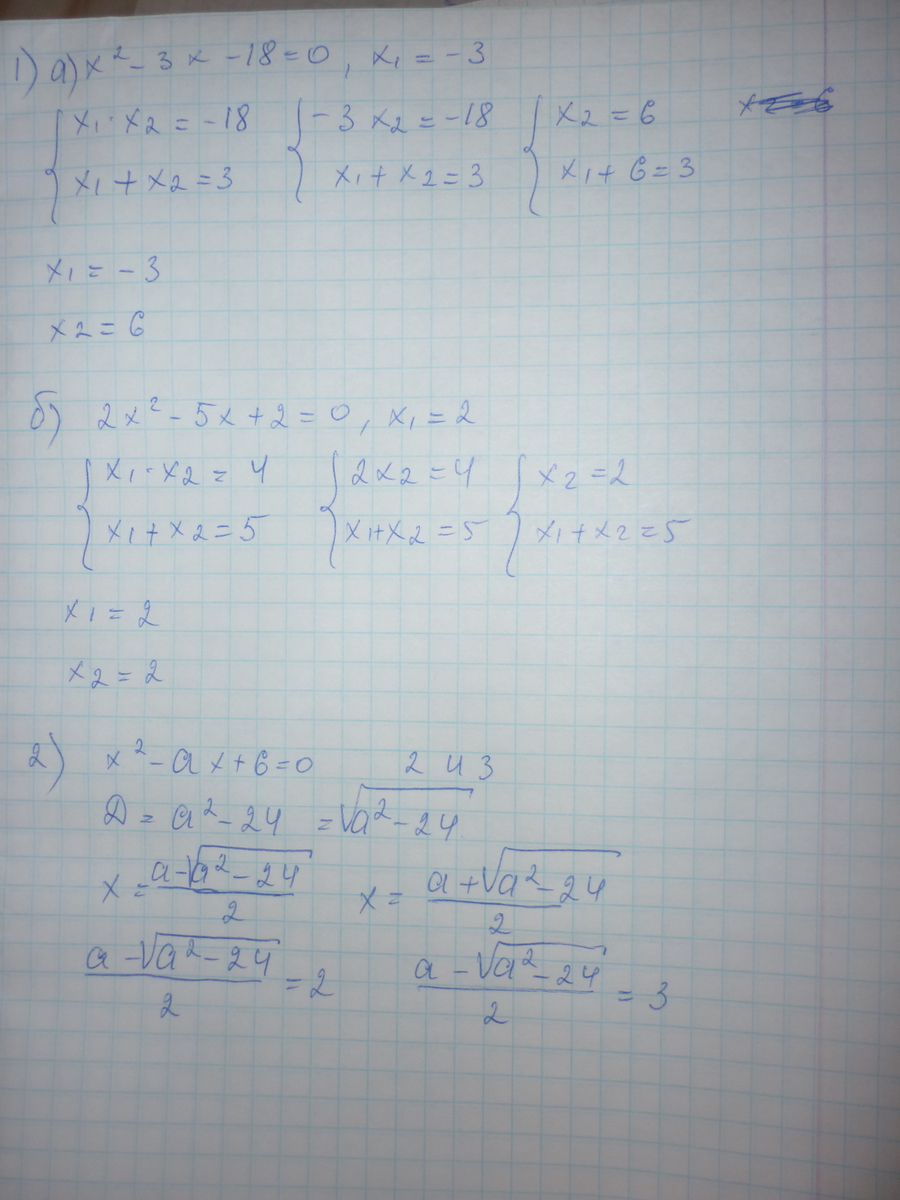 1) а) x² - 3x - 18 = 0, x₁ = -3
{ x₁ · x₂ = -18 { -3x₂ = -18 { x₂ = 6
x₁ + x₂ = 3 x₁ + x₂ = 3 x₁ + 6 = 3
x₁ = -3
x₂ = 6
б) 2x² - 5x + 2 = 0, x₁ = 2
{ x₁ · x₂ = 4 { 2x₂ = 4 { x₂ = 2
x₁ + x₂ = 5 x₁ + x₂ = 5 x₁ + x₂ = 5
x₁ = 2
x₂ = 2
2) x² - ax + 6 = 0 2 и 3
D = a² - 24 = √(a² - 24)
x = (a - √(a² - 24))/2 x = (a + √(a² - 24))/2
(a - √(a² - 24))/2 = 2 (a - √(a² - 24))/2 = 3